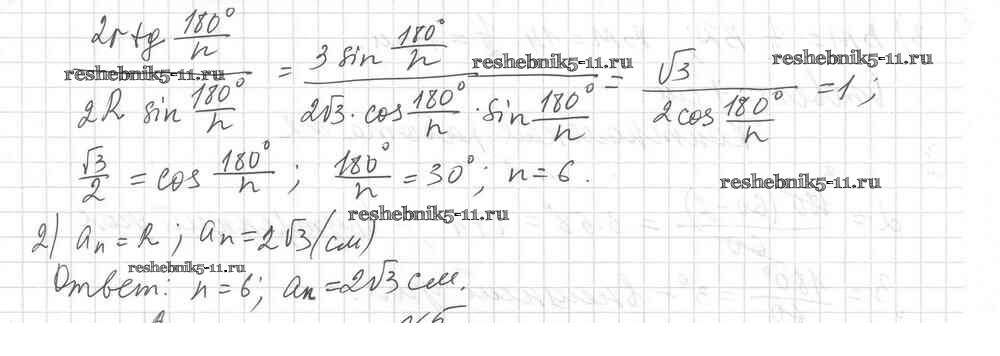 2r tg 180°/n / 2R sin 180°/n = 3 sin 180°/n / 2√3 · cos 180°/n · sin 180°/n = √3 / 2cos 180°/n = 1;
reshebnik5-11.ru reshebnik5-11.ru reshebnik5-11.ru
√3/2 = cos 180°/n ; 180°/n = 30°; n = 6.
reshebnik5-11.ru
reshebnik5-11.ru
2) aₙ = R ; aₙ = 2√3 (см)
reshebnik5-11.ru
Ответ: n = 6; aₙ = 2√3 см.